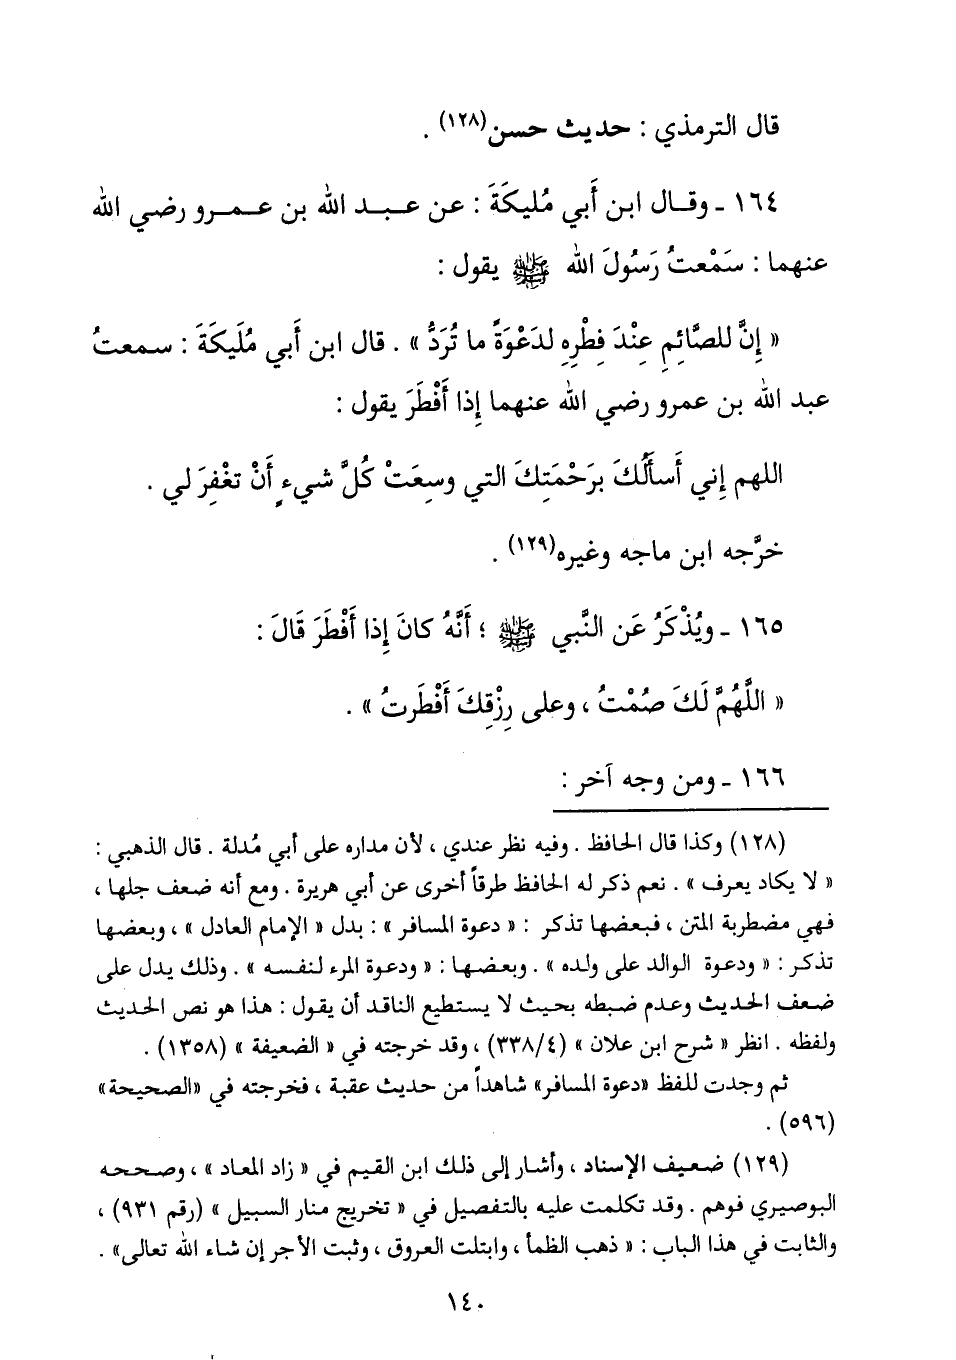 قال الترمذي : حديث حسن(١٢٨) .
١٦٤ ـ وقـال ابن أَبي مُليكَةَ : عن عبـد الله بن عـمـرو رضي الله
عنهما : سَمْعتُ رَسُولَ الله ﷺ يقول :
« إِنَّ للصَّائِمِ عِنْدَ فِطْرِهِ لدَعْوَةً ما تُرَدُّ » . قال ابن أَبي مُلَيكَةَ : سمعتُ
عبد الله بن عمرو رضي الله عنهما إِذا أَفْطَرَ يقول :
اللهم إِني أَسأَلُكَ برَحْمَتِكَ التي وسِعَتْ كُلَّ شيءٍ أَنْ تغْفِرَ لي .
خرَّجه ابن ماجه وغيره(١٢٩) .
١٦٥ ـ ويُذْكَرُ عَن النَّبي ﷺ ؛ أَنَّهُ كانَ إِذا أَفْطَرَ قَالَ :
« اللَّهُمَّ لَكَ صُمْتُ ، وعلى رِزْقِكَ أَفْطَرتُ » .
١٦٦ ـ ومن وجه آخر :
(١٢٨) وكذا قال الحافظ . وفيه نظر عندي ، لأن مداره على أبي مُدلة . قال الذهبي :
« لا يكاد يعرف » . نعم ذكر له الحافظ طرقاً أخرى عن أبي هريرة . ومع أنه ضعف جلها ،
فهي مضطربة المتن ، فبعضها تذكر : « دعوة المسافر » : بدل « الإمام العادل » ، وبعضها
تذكر : « ودعوة الوالد على ولده » . وبعضها : « ودعوة المرء لنفسه » . وذلك يدل على
ضعف الحديث وعدم ضبطه بحيث لا يستطيع الناقد أن يقول : هذا هو نص الحديث
ولفظه . انظر « شرح ابن علان » (٤/٣٣٨) ، وقد خرجته في « الضعيفة » (١٣٥٨) .
ثم وجدت للفظ «دعوة المسافر» شاهداً من حديث عقبة ، فخرجته في «الصحيحة»
(٥٩٦) .
(١٢٩) ضعيف الإسناد ، وأشار إلى ذلك ابن القيم في « زاد المعاد » ، وصححه
البوصيري فوهم . وقد تكلمت عليه بالتفصيل في « تخريج منار السبيل » (رقم ٩٣١) ،
والثابت في هذا الباب : « ذهب الظمأ ، وابتلت العروق ، وثبت الأجر إن شاء الله تعالى» .
١٤٠